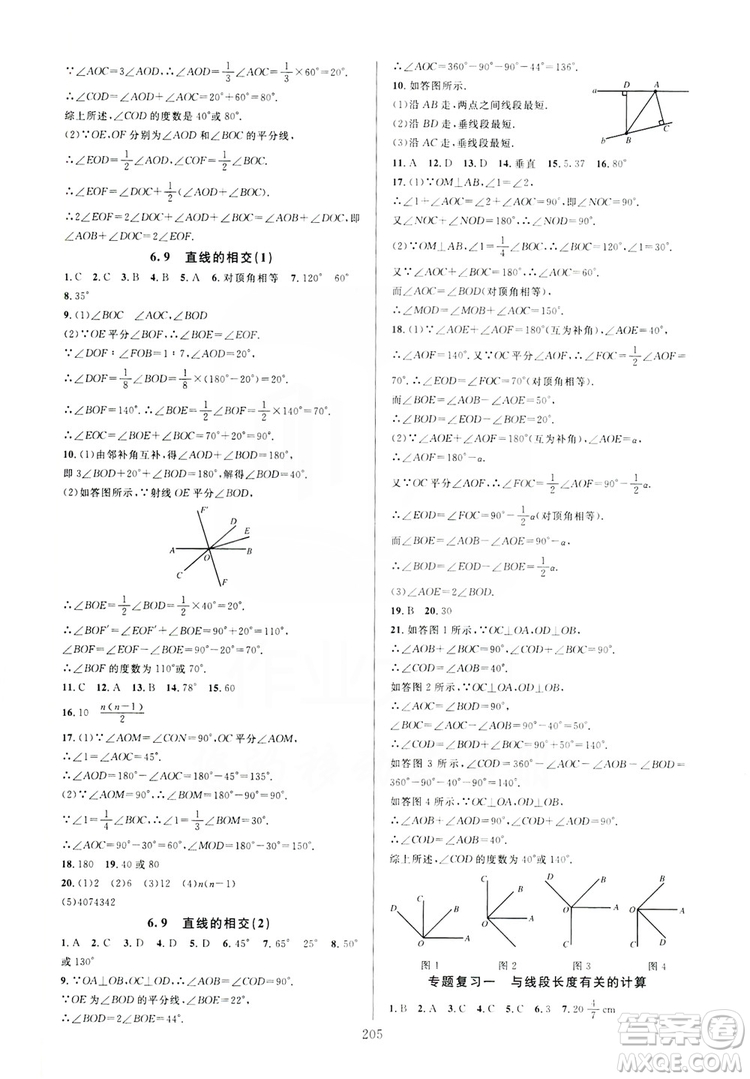 ∵∠AOC=3∠AOD,∴∠AOD=1/2∠AOC=30°.
∴∠COD=∠AOC+∠AOD=60°+20°=80°.
综上所述,∠COD的度数是40°或80°.
(2)∵OE,OF分别为∠AOD和∠BOC的平分线,
∴∠EOD=1/2∠AOD,∠COF=1/2∠BOC.
又∵∠EOF=∠EOD+∠COD+∠COF,
∴2∠EOF=2∠EOD+2∠COD+2∠COF,即
2∠EOF=∠AOD+2∠COD+∠BOC=180°+∠COD,即
∠AOB=180°.
6.9 直线的相交(1)
1.C 2.C 3.B 4.B 5.A 6.对顶角相等 7.120° 60°
8.35°
9.(1)∠BOC ∠AOC,∠BOD
(2)∵OE平分∠BOF,∴∠BOE=∠EOF.
∵∠DOF:∠FOB=1:7,
∴∠DOF=1/8∠BOD=1/8×(180°-20°)=20°.
∴∠BOF=140°.∴∠BOE=1/2∠BOF=1/2×140°=70°.
∴∠EOC=∠BOE+∠BOC=70°+20°=90°.
10.(1)由邻补角互补,得∠AOD+∠BOD=180°,
即3∠BOD+∠BOD+20°=180°,解得∠BOD=40°.
(2)如答图所示,∵射线OE平分∠BOD,
F′ D E A O B C F
∴∠BOE=1/2∠BOD=1/2×40°=20°.
∴∠BOF′=∠EOF′+∠BOE=90°+20°=110°.
∠BOF=∠EOF-∠BOE=90°-20°=70°.
∴∠BOF的度数为110°或70°.
11.C 12.A 13.B 14.78° 15.60
16.10 n(n-1)/2
17.(1)∵∠AOM=∠CON=90°,OC平分∠AOM,
∴∠1=∠AOC=45°.
∴∠AOD=180°-∠AOC=180°-45°=135°.
(2)∵∠AOM=90°,∴∠BOM=180°-90°=90°.
∵∠1=1/4∠BOC,∴∠1=1/3∠BOM=30°.
∴∠AOC=90°-30°=60°,∠MOD=180°-30°=150°.
18.180 19.40或80
20.(1)2 (2)6 (3)12 (4)n(n-1)
(5)4074342
6.9 直线的相交(2)
1.A 2.C 3.D 4.A 5.D 6.45° 7.65° 25° 8.50°
或130°
9.∵OA⊥OB,∴∠AOB=90°.
∵∠AOB=∠BOC+∠AOC,∠AOC=68°,
∴∠BOC=22°.
∵OB平分∠COD,∴∠BOD=∠BOC=22°.
∴∠COD=44°.
∴∠AOC=360°-90°-90°-44°=136°.
10.如答图所示.
(1)沿AB走,两点之间线段最短.
(2)沿BD走,垂线段最短.
(3)沿AC走,垂线段最短.
a D A B C b
11.A 12.D 13.D 14.垂直 15.5.37 16.80°
17.(1)∵OM⊥AB,∠1=∠2,
∴∠1+∠AOC=∠2+∠AOC=90°.
又∵∠NOC+∠NOD=180°,
∴∠NOD=180°-∠NOC=180°-90°=90°.
(2)∵OM⊥AB,∠1=1/4∠BOC,
∴∠1=30°,∠BOC=120°.
又∵∠AOC+∠BOC=180°,∴∠AOC=60°.
而∠AOC=∠BOD,
∴∠MOD=∠MOB+∠AOC=150°.
18.(1)∵∠AOE+∠AOF=180°(互为补角),∠AOE=40°,
∴∠AOF=140°.又∵OC平分∠AOF,∴∠FOC=1/2∠AOF=
70°.∴∠EOD=∠FOC=70°(对顶角相等).
而∠BOE=∠AOB-∠AOE=50°,
∴∠BOD=∠EOD-∠BOE=20°.
(2)∵∠AOE+∠AOF=180°(互为补角),∠AOE=α,
∴∠AOF=180°-α.
又∵OC平分∠AOF,∴∠FOC=1/2∠AOF=90°-1/2α.
∴∠EOD=∠FOC=90°-1/2α(对顶角相等).
而∠BOE=∠AOB-∠AOE=90°-α,
∴∠BOD=∠EOD-∠BOE=1/2α.
(3)∠AOE=2∠BOD.
19.B 20.30
21.如答图1所示,∵OC⊥OA,OD⊥OB,
∴∠AOB+∠BOC=∠COD+∠BOC=90°.
∴∠COD=∠AOB=40°.
如答图2所示,∵OC⊥OA,OD⊥OB,
∴∠AOC=∠BOD=90°.
∴∠COD=∠AOC+∠BOD-∠AOB=90°+90°-40°=140°.
如答图3所示,∵OC⊥OA,OD⊥OB,
∴∠AOC=∠BOD=90°.∴∠COD=360°-∠AOC-∠BOD-∠AOB=
360°-90°-90°-40°=140°.
如答图4所示,∵OC⊥OA,OD⊥OB,
∴∠AOB+∠AOD=∠AOD+∠COD=90°.
∴∠COD=∠AOB=40°.
综上所述,∠COD的度数为40°或140°.
C B D O A
C B O A D
D B O A C
B O A D C
图1 图2 图3 图4
专题复习一 与线段长度有关的计算
1.B 2.A 3.B 4.C 5.C 6.3 7.20 4/7 cm
205